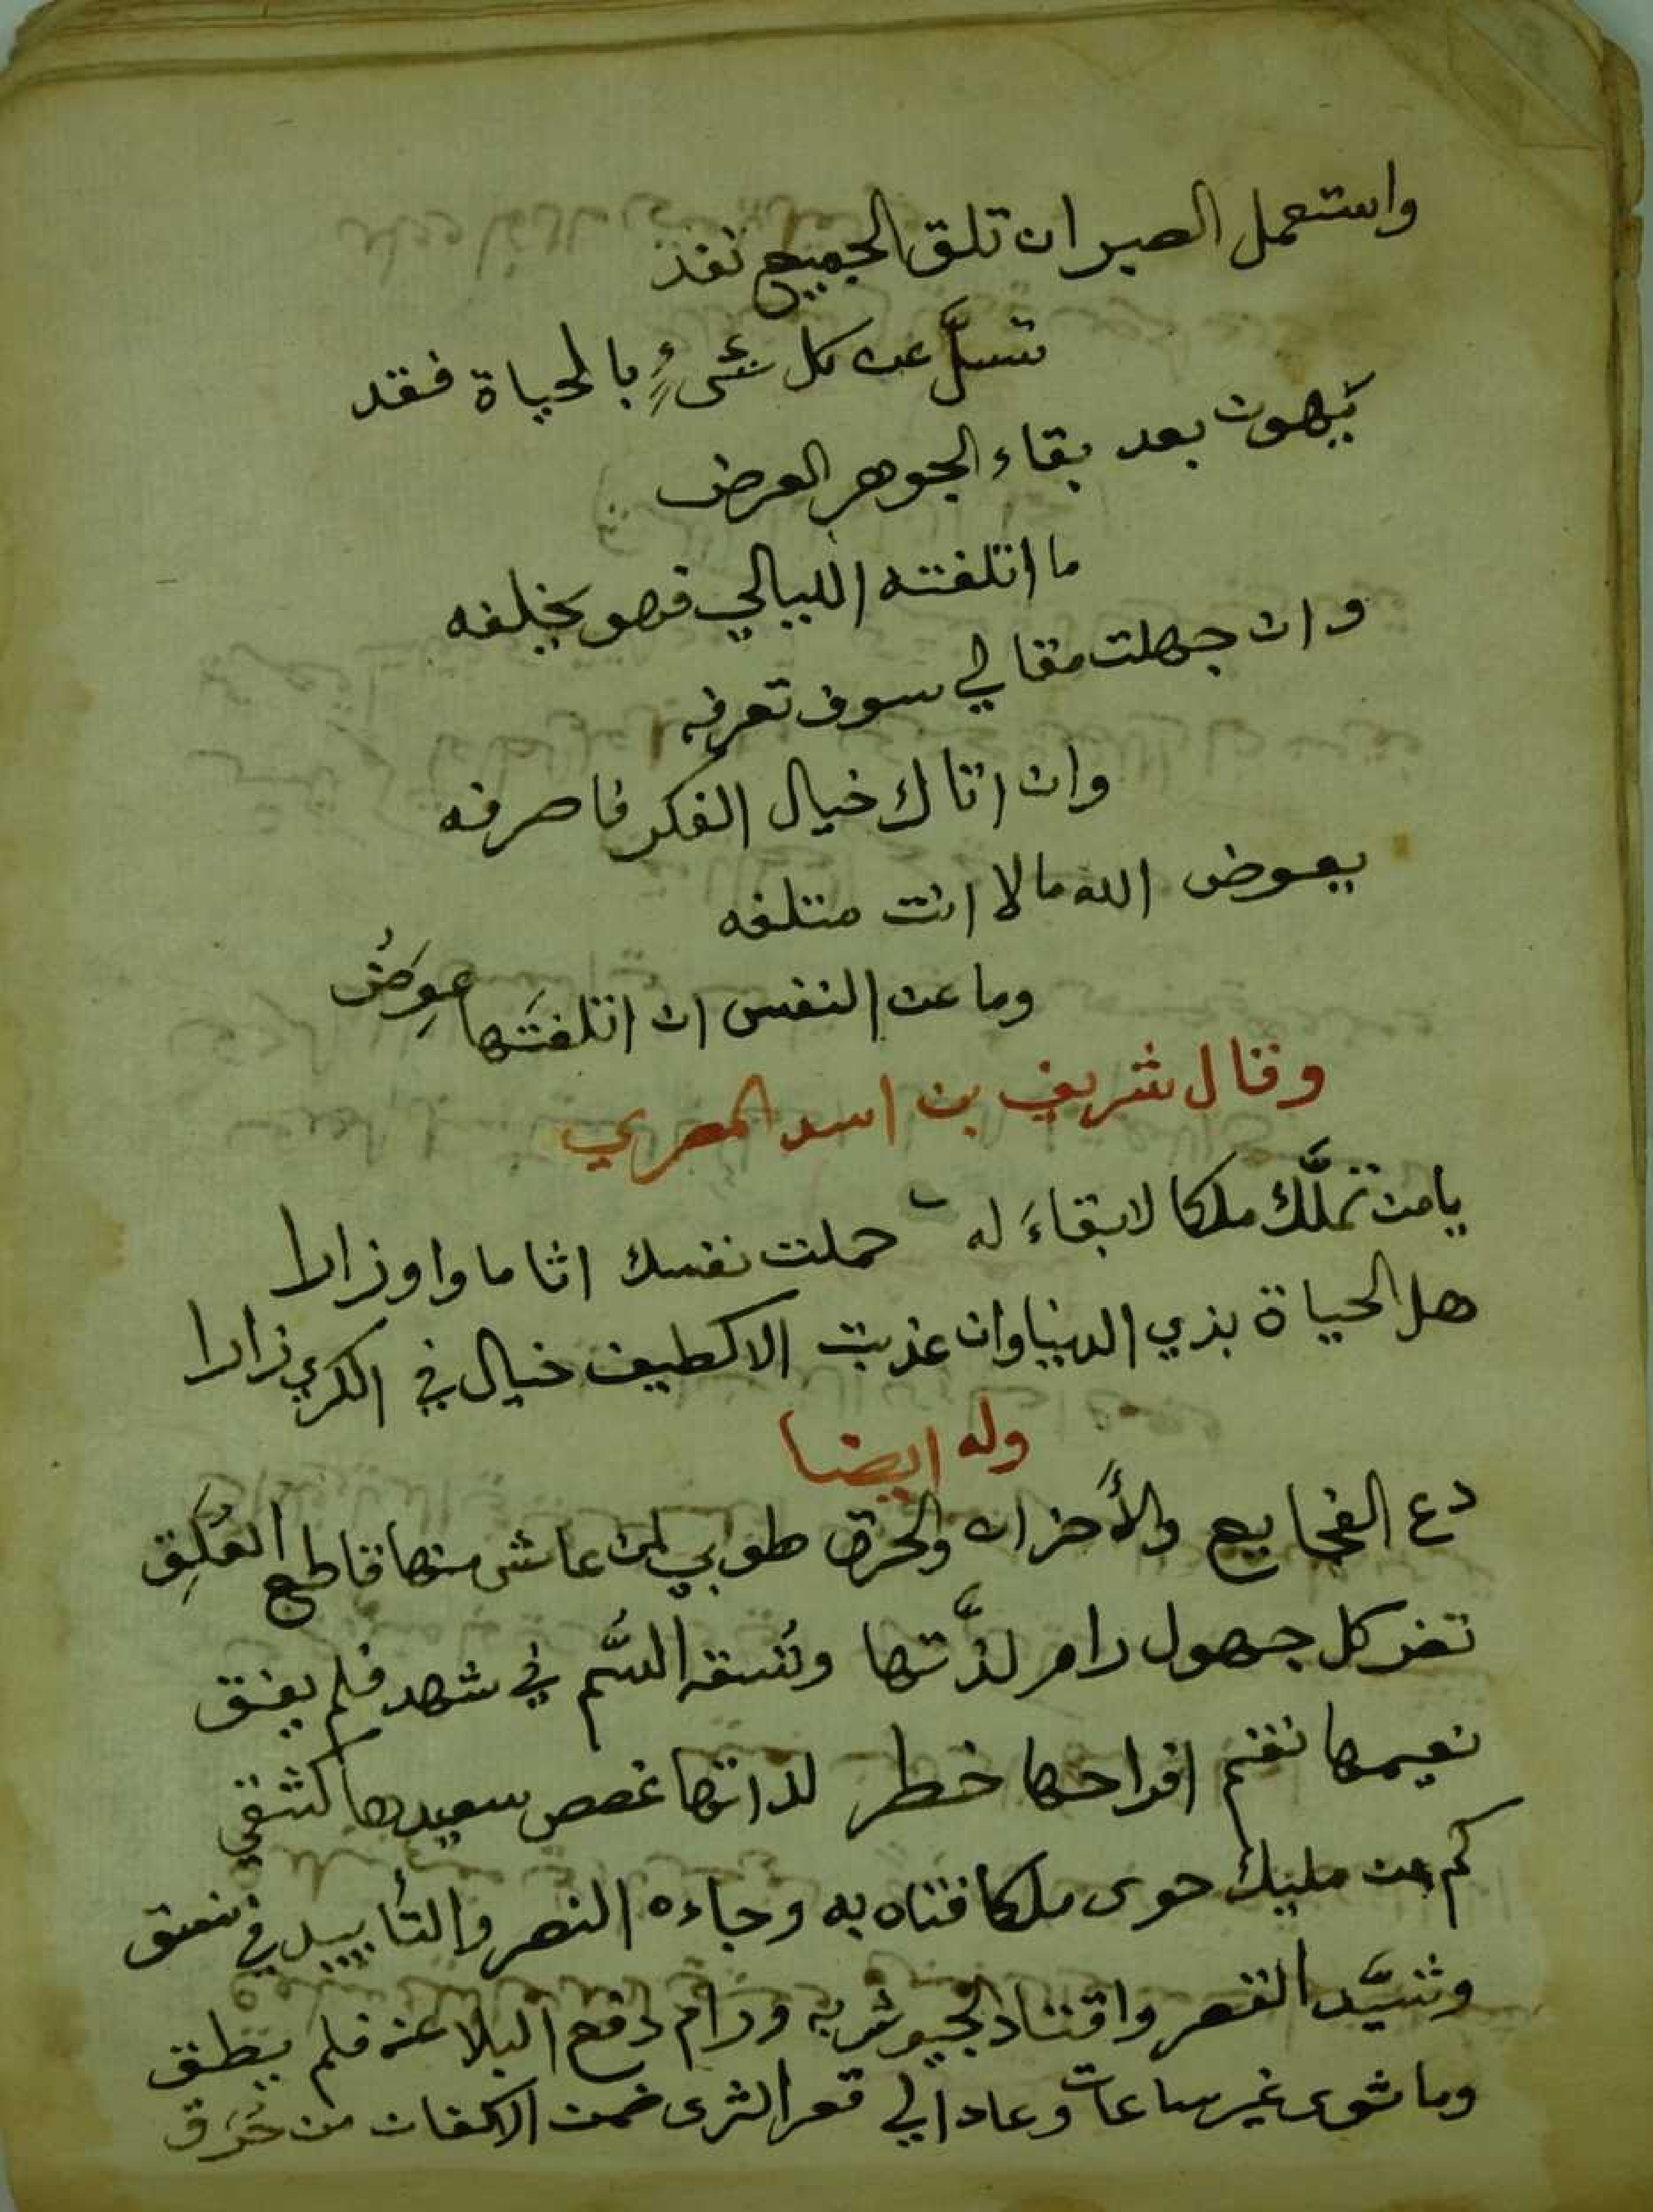 واستعمل الصبر ان تلق الجميع نفد
تسلَّ عن كل شىءٍ بالحياة فقد
يَهون بعد بقاء الجوهر العرض
ما اتلفته الليالي فهو يخلفه
وان جهلت مقالي سوف تعرفه
وان اتاك خيال الفكر فاصرفه
يعوض الله مالا انت متلفه
وما عن النفس ان اتلفتَها عِوَضُ
وقال شريف بن اسد المصري
يامن تملَّك ملكا لابقاءَ له حملت نفسك اثاما واوزارا
هل الحياة بذي الدنيا وان عذبت الا كطيف خيال في الكري زارا
وله ايضا
دع الفجايع والأحزان والحرق طوبي لمن عاش منها قاطع العُلَقِ
تغر كل جهول رام لذَّتها وتسقه السَّم في شهد فلم يفق
نعيمها نقم افراحها خطر لذاتها غصص سعيدها كشقي
كم من مليك حوى ملكا فتاه به وجاءه النصر والتأييد في نسق
وشيَّد القصر واقتاد الجيوش به ورام دفع البلا عنه فلم يطق
وما ثوى غير ساعات وعاد الي قعر الثرى ضمن الاكفان من خَرَق